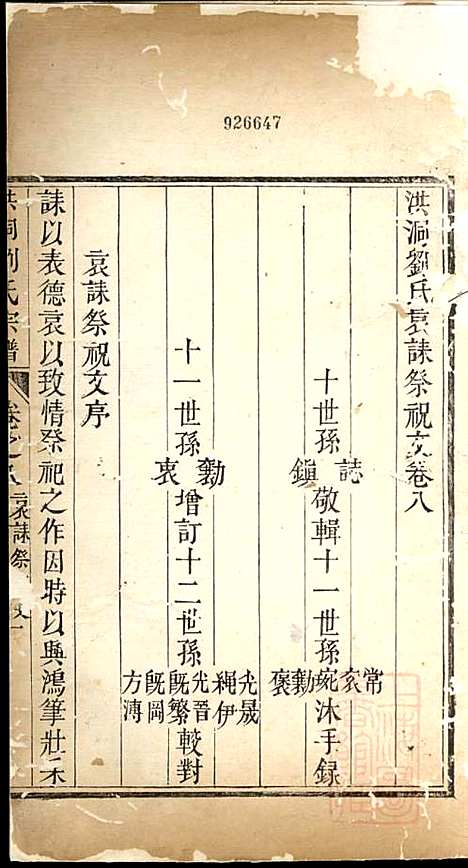 926647
洪洞劉氏哀誄祭祝文卷八
十世孫誌鎮敬輯十一世孫常玄琬勷褒沐手録
十一世孫勷衷增訂十二世孫光晟繩伊光晉旣繁旣岡方溥較對
哀誄祭祝文序
誄以表德哀以致情祭祀之作因時以興鴻筆壯采
洪洞劉氏宗譜 卷之八 哀誄祭